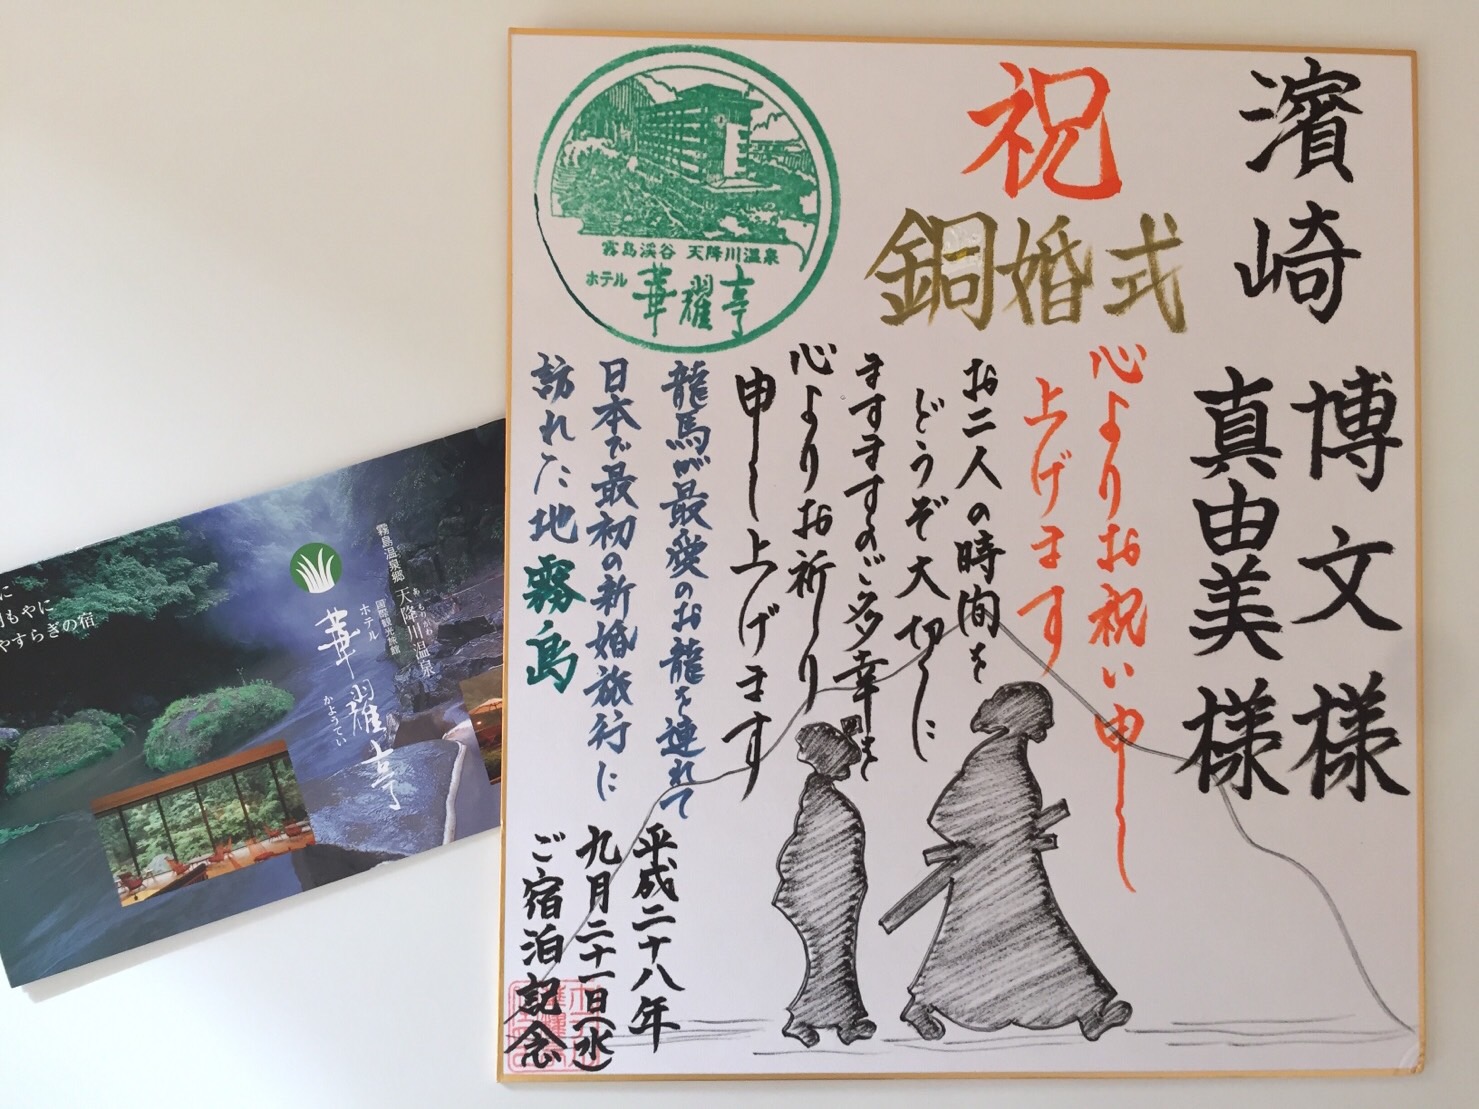 濱崎 博文様
真由美様
祝
銅婚式
心よりお祝い申し
上げます
お二人の時間を
どうぞ大切に
ますますのご多幸を
心よりお祈り
申し上げます
龍馬が最愛のお龍を連れて
日本で最初の新婚旅行に
訪れた地霧島
平成二十八年
九月二十一日(水)
ご宿泊記念
霧島渓谷 天降川温泉
ホテル 華耀亭
霧島温泉郷 天降川温泉
あもりがわ
国際観光旅館
ホテル
華耀亭
かようてい
に
もやに
やすらぎの宿